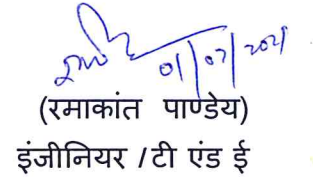 01/07/2021
(रमाकांत पाण्डेय)
इंजीनियर /टी एंड ई